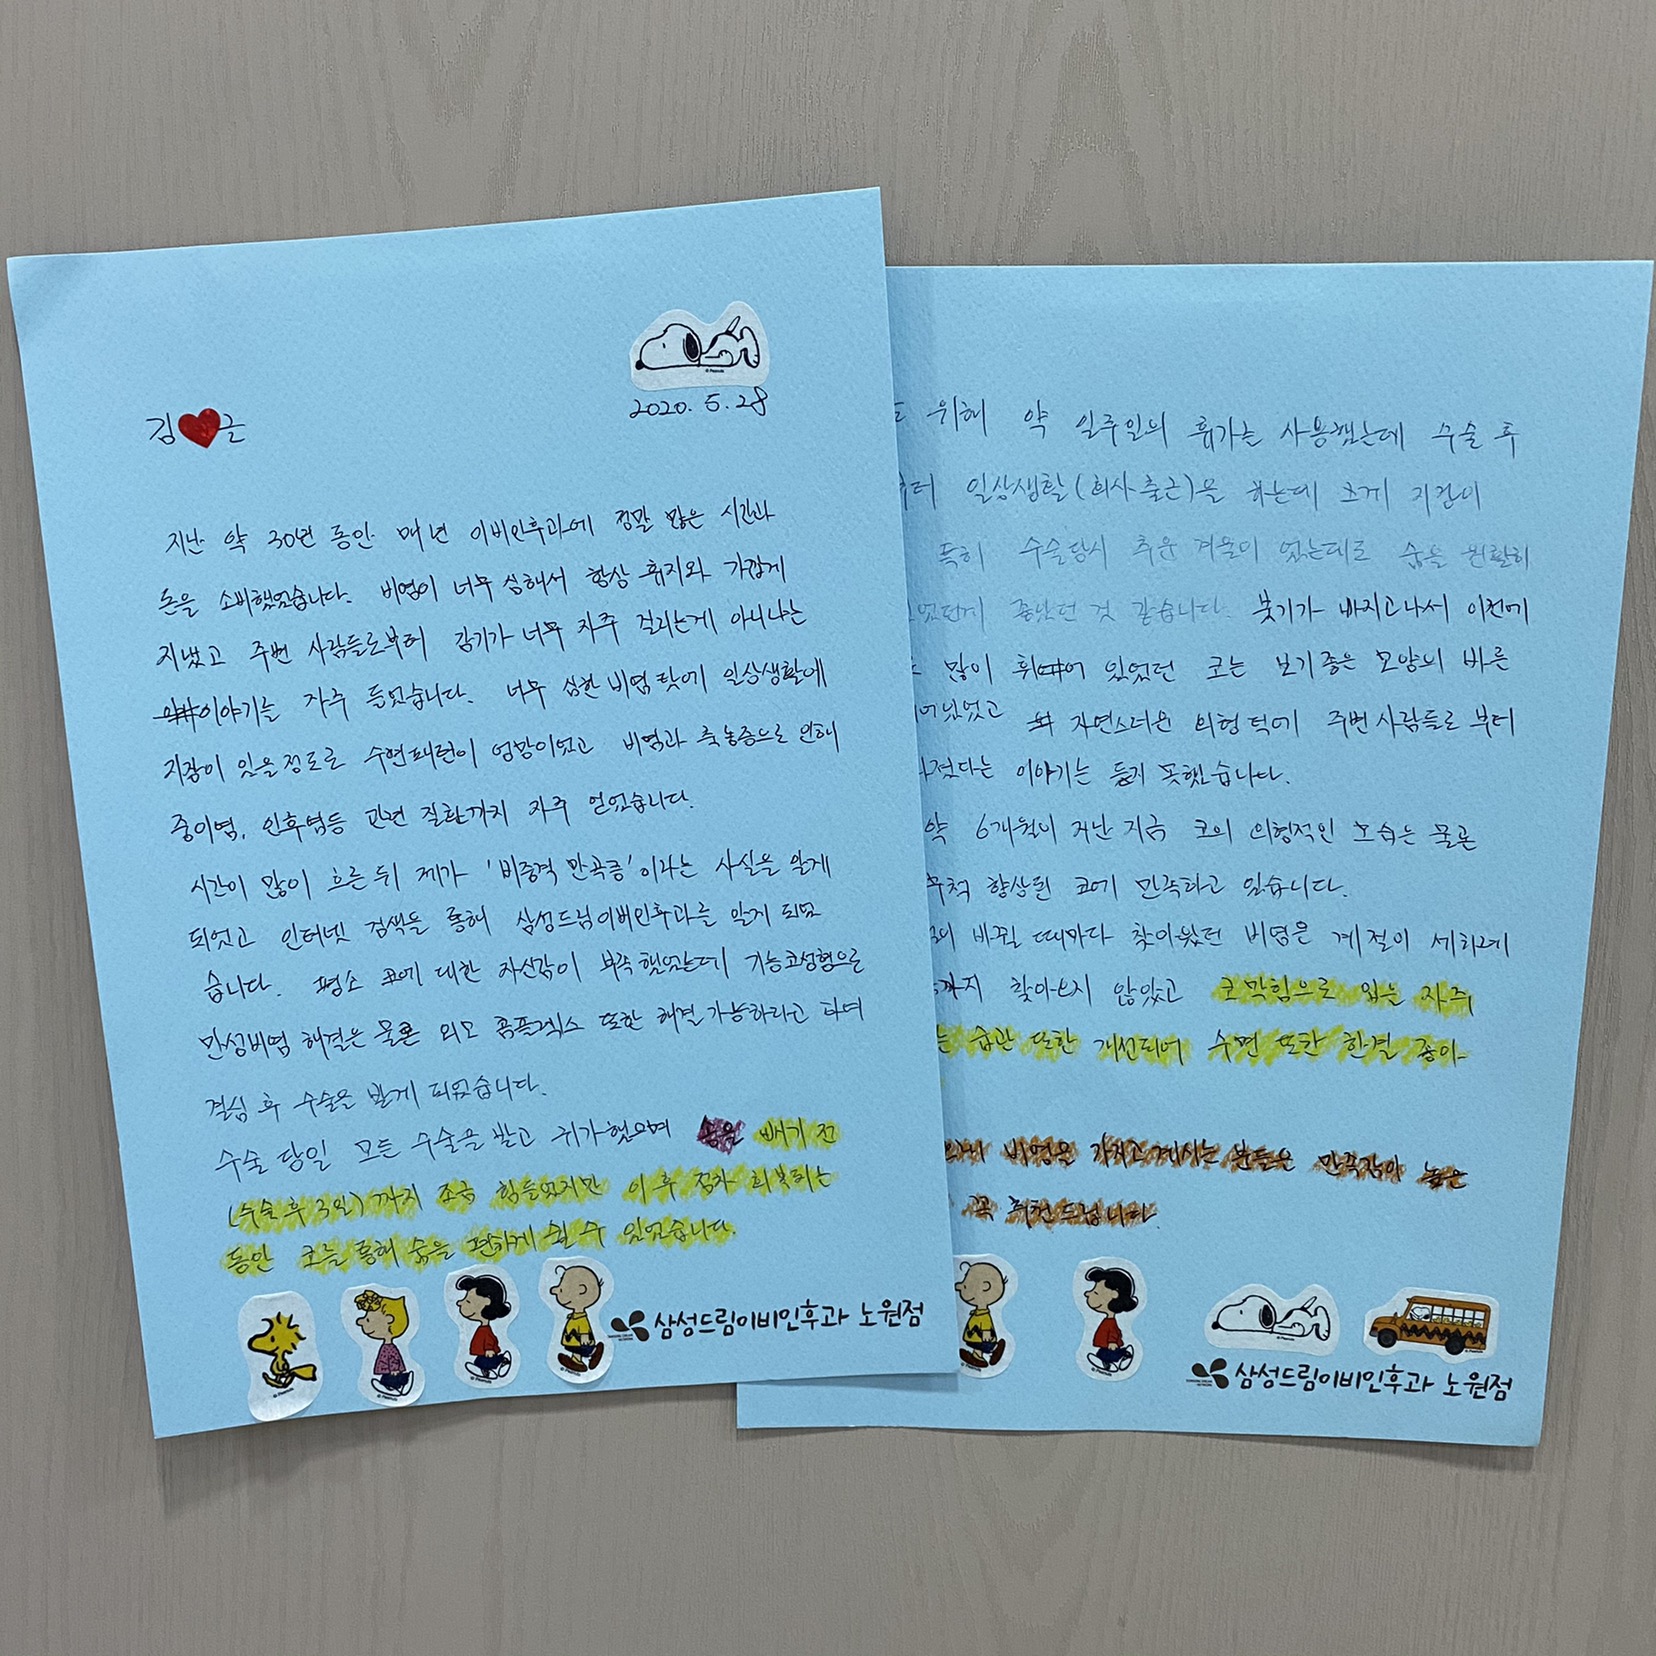 2020. 5. 28
김 글
지난 약 30년 동안 매년 이비인후과에 정말 많은 시간과
돈을 소비했었습니다. 비염이 너무 심해서 항상 휴지와 가깝게
지냈고 주변 사람들로부터 감기가 너무 자주 걸리는게 아니냐는
이야기를 자주 들었습니다. 너무 심한 비염 탓에 일상생활에
지장이 있을정도로 수면패턴이 엉망이었고 비염과 축농증으로 인해
중이염, 인후염등 관련 질환까지 자주 얻었습니다.
시간이 많이 흐른 뒤 제가 '비중격 만곡증'이라는 사실을 알게
되었고 인터넷 검색을 통해 삼성드림이비인후과를 알게 되었
습니다. 평소 코에 대한 자신감이 부족했었는데 기능코성형으로
만성비염 해결은 물론 외모 콤플렉스 또한 해결가능하라고 하여
결심 후 수술을 받게 되었습니다.
수술 당일 모든 수술을 받고 귀가했으며 솜을 빼기 전
(수술 후 3일)까지 조금 힘들었지만 이후 점차 회복하는
동안 코를 통해 숨을 편하게 쉴 수 있었습니다.
삼성드림이비인후과 노원점
위해 약 일주일의 휴가를 사용했는데 수술 후
일상생활(회사 출근)을 하는데 크게 지장이
특히 수술당시 추운 겨울이 었는데도 숨을 원활히
좋았던 것 같습니다. 붓기가 빠지고나서 이전에
많이 휘어 있었던 코는 보기좋은 모양의 바른
자연스러운 외형 덕에 주변 사람들로 부터
이야기는 듣지 못했습니다.
약 6개월이 지난 지금 코의 외형적인 모습은 물론
향상된 코에 만족하고 있습니다.
바뀔 때마다 찾아왔던 비염은 계절이 세차례
찾아오지 않았고 코막힘으로 입은 자주
습관 또한 개선되어 수면 또한 한결 좋아
비염을 가지고 계시는 분들은 만족감이 높은
꼭 추천드립니다.
삼성드림이비인후과 노원점